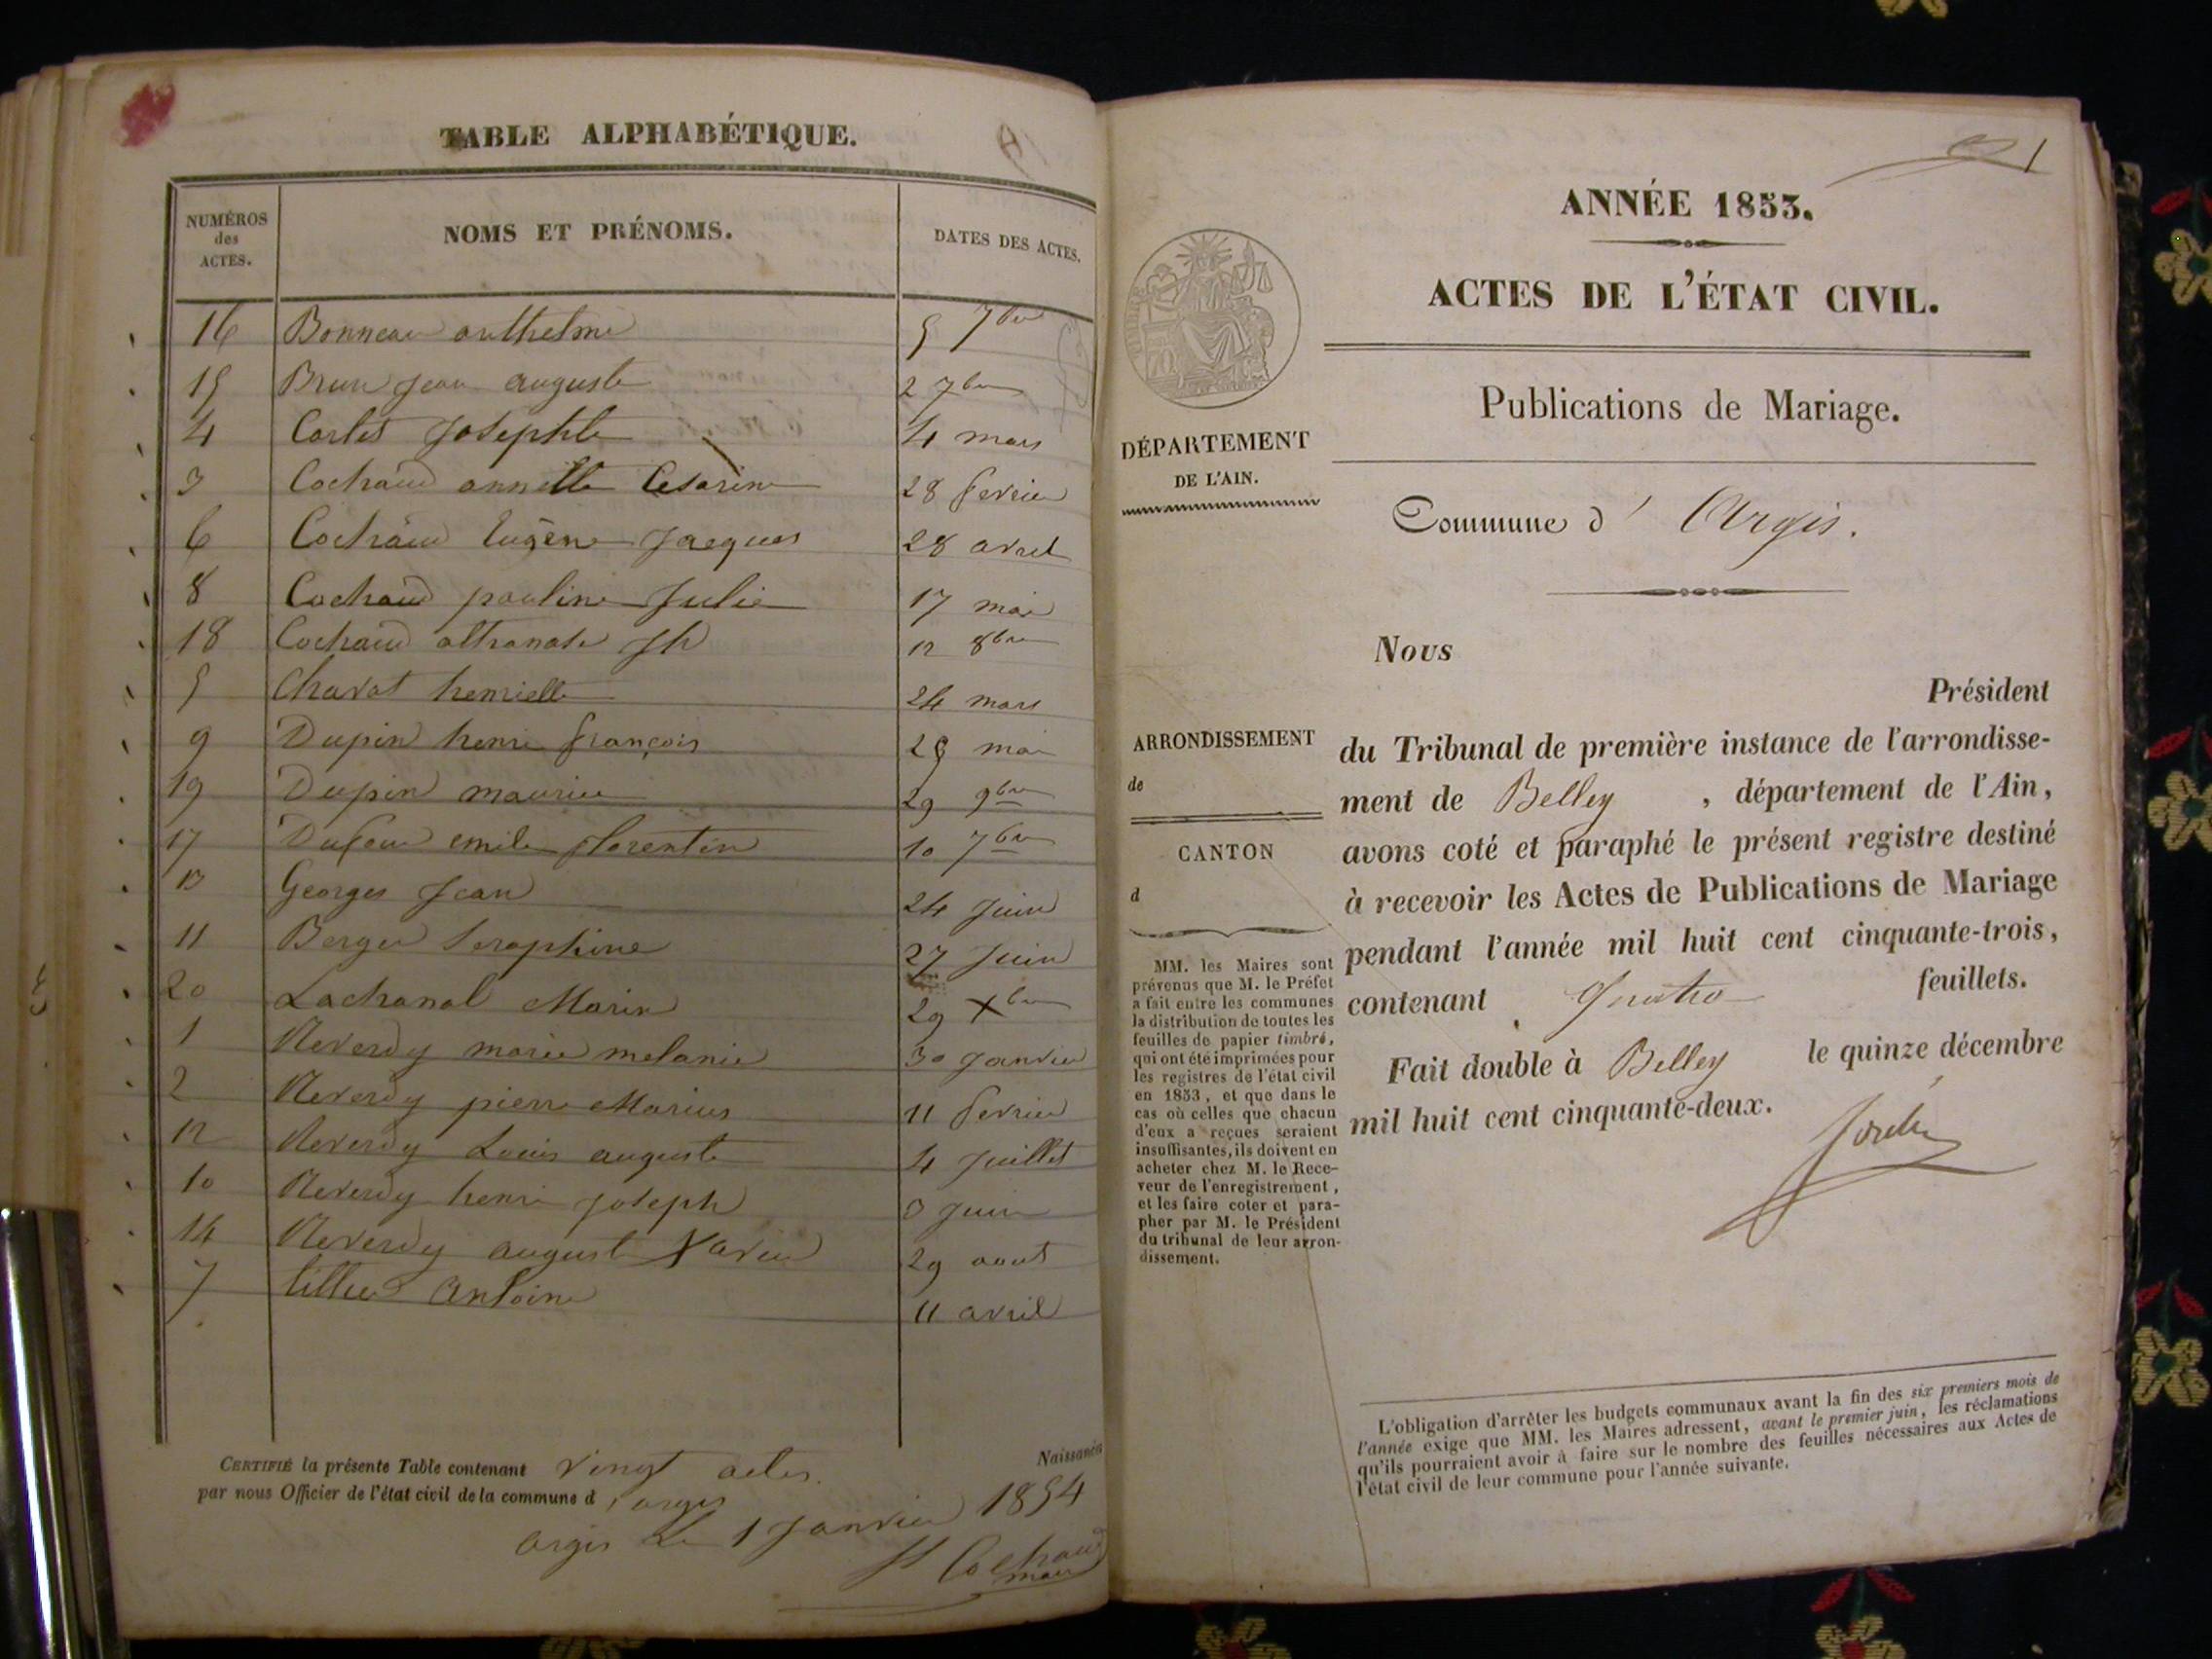 TABLE ALPHABÉTIQUE.
NUMÉROS des ACTES.
NOMS ET PRÉNOMS.
DATES DES ACTES.
16 Bonneau anthelme 5 7bre
15 Brun Jean auguste 2 7bre
4 Carlet Josephte 4 mars
3 Cochaud annette Cesarine 28 fevrier
6 Cochaud Eugène Jacques 28 avril
8 Cochaud pauline Julie 17 mai
18 Cochaud athanase Jh 12 8bre
5 Charat henriette 24 mars
9 Dupin henri françois 29 mai
19 Dupin maurice 29 9bre
17 Dufour emile florentin 10 7bre
13 Georges Jean 24 Juin
11 Berger Seraphine 27 Juin
20 Lachanal Marie 29 Xbre
1 Reverdy marie melanie 30 Janvier
2 Reverdy pierre Marius 11 fevrier
12 Reverdy Louis auguste 4 Juillet
10 Reverdy henri Joseph 3 Juin
14 Reverdy auguste Xavier 29 aout
7 Antoine 11 avril
CERTIFIÉ la présente Table contenant vingt actes. Naissances
par nous Officier de l'état civil de la commune d'argis
argis Le 1 Janvier 1854
Cochaud
maire
1
ANNÉE 1853.
ACTES DE L'ÉTAT CIVIL.
Publications de Mariage.
DÉPARTEMENT
DE L'AIN.
Commune d' Argis.
Nous
Président
ARRONDISSEMENT
de
CANTON
d
du Tribunal de première instance de l'arrondisse-
ment de Belley , département de l'Ain,
avons coté et paraphé le présent registre destiné
à recevoir les Actes de Publications de Mariage
pendant l'année mil huit cent cinquante-trois,
contenant Quatre feuillets.
Fait double à Belley le quinze décembre
mil huit cent cinquante-deux.
MM. les Maires sont
prévenus que M. le Préfet
a fait entre les communes
la distribution de toutes les
feuilles de papier timbré,
qui ont été imprimées pour
les registres de l'état civil
en 1853, et que dans le
cas où celles que chacun
d'eux a reçues seraient
insuffisantes, ils doivent en
acheter chez M. le Rece-
veur de l'enregistrement,
et les faire coter et para-
pher par M. le Président
du tribunal de leur arron-
dissement.
L'obligation d'arrêter les budgets communaux avant la fin des six premiers mois de
l'année exige que MM. les Maires adressent, avant le premier juin, les réclamations
qu'ils pourraient avoir à faire sur le nombre des feuilles nécessaires aux Actes de
l'état civil de leur commune pour l'année suivante.